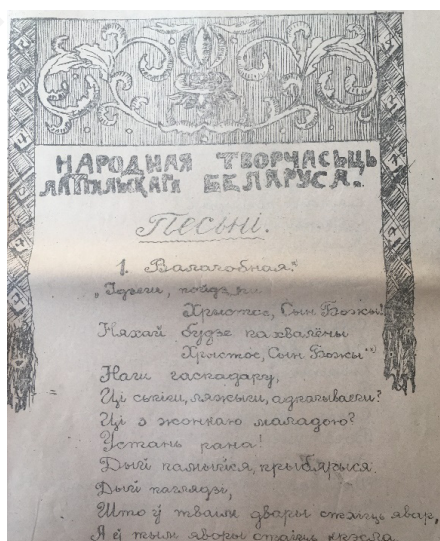 НАРОДНАЯ ТВОРЧАСЬЦЬ
ЛАТГАЛЬСКАГА БЕЛАРУСА.
Песьні.
1. Валачобная.*
Хрыстос, Сын Божы!
Няхай будзе пахвалёны
Хрыстос, Сын Божы**)
Наш гаспадару,
Ці сьпіш, ляжыш, адпачываеш?
Ці з жонкаю маладою?
Устань рана!
Дый памыйся, прыбярыся.
Дый паглядзі,
Што ў тваім двары стаіць явар,
А ў тым явары стаіць